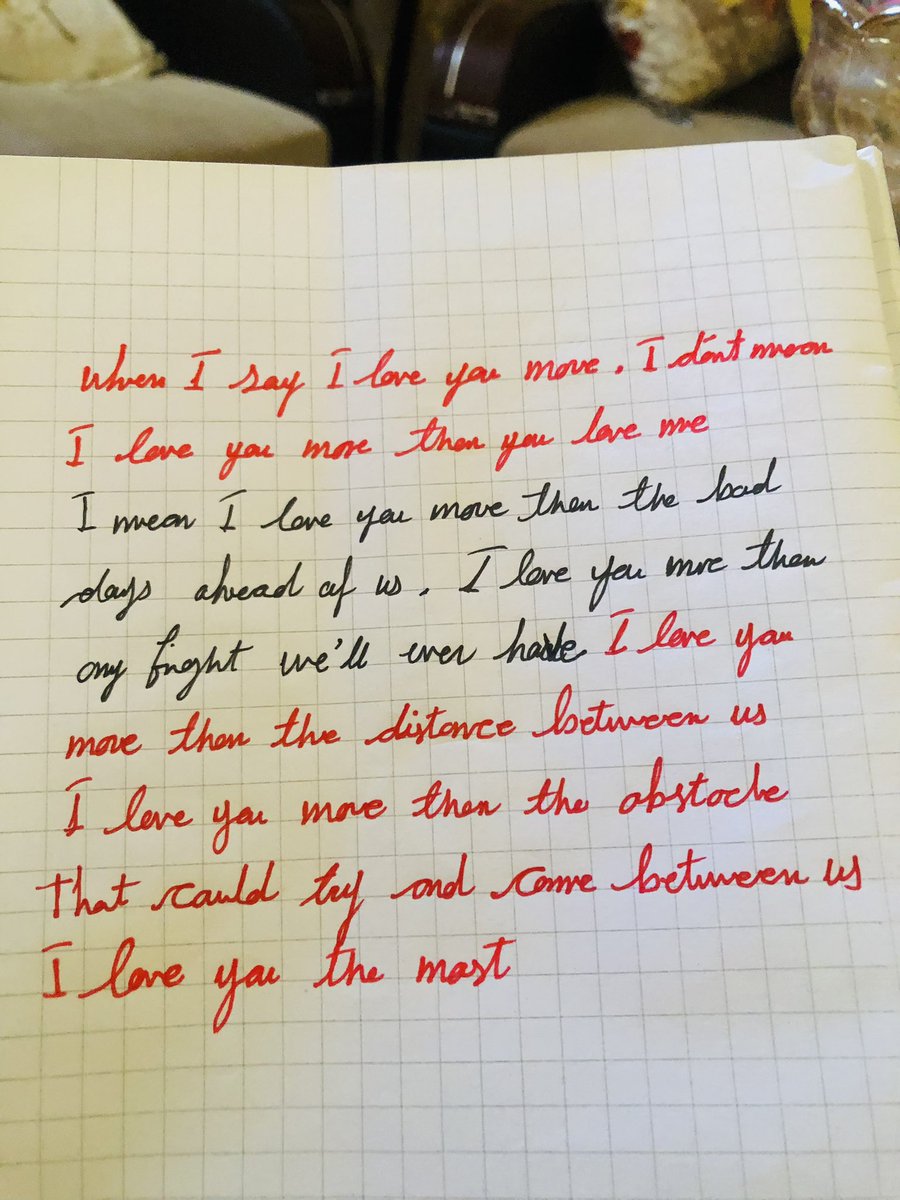 When I say I love you more. I don't mean
I love you more then you love me
I mean I love you more then the bad
days ahead of us. I love you more then
any finght we'll ever have I love you
more then the distance between us
I love you more then the obstacle
that could try and come between us
I love you the most